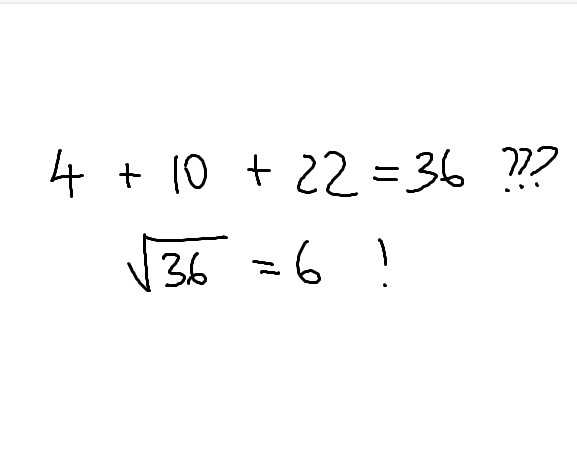 4 + 10 + 22 = 36 ???
√36 = 6 !